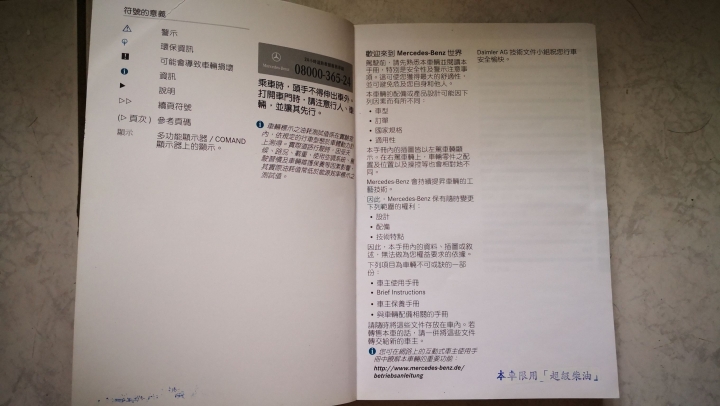 符號的意義
警示
環保資訊
可能會導致車輛損壞
資訊
說明
續頁符號
(▷ 頁次) 參考頁碼
顯示 多功能顯示器 / COMAND
顯示器上的顯示。
Mercedes-Benz
08000-365-24
乘車時，頭手不得伸出車外。
打開車門時，請注意行人、車
輛，並讓其先行。
歡迎來到 Mercedes-Benz 世界
駕駛前，請先熟悉本車輛並閱讀本
手冊，特別是安全性及警示注意事
項。這可使您獲得最大的舒適性，
並可避免危及您自身和他人。
本車輛的配備或產品設計可能因下
列因素而有所不同：
• 車型
• 訂單
• 國家規格
• 適用性
本手冊內的插圖皆以左駕車輛顯
示。在右駕車輛上，車輛零件之配
置及位置以及操控等也會相對地不
同。
Mercedes-Benz 會持續提昇車輛的工
藝技術。
因此，Mercedes-Benz 保有隨時變更
下列範圍的權利：
• 設計
• 配備
• 技術特點
因此，本手冊內的資料、插圖或敘
述，無法做為您權益要求的依據。
下列項目為車輛不可或缺的一部
份：
• 車主使用手冊
• Brief Instructions
• 車主保養手冊
• 與車輛配備相關的手冊
請隨時將這些文件存放在車內。若
轉售本車的話，請一併將這些文件
轉交給新的車主。
您可在網路上的互動式車主使用手
冊中瞭解本車輛的重要功能：
http://www.mercedes-benz.de/
betriebsanleitung
Daimler AG 技術文件小組祝您行車
安全愉快。
本車限用「超級柴油」